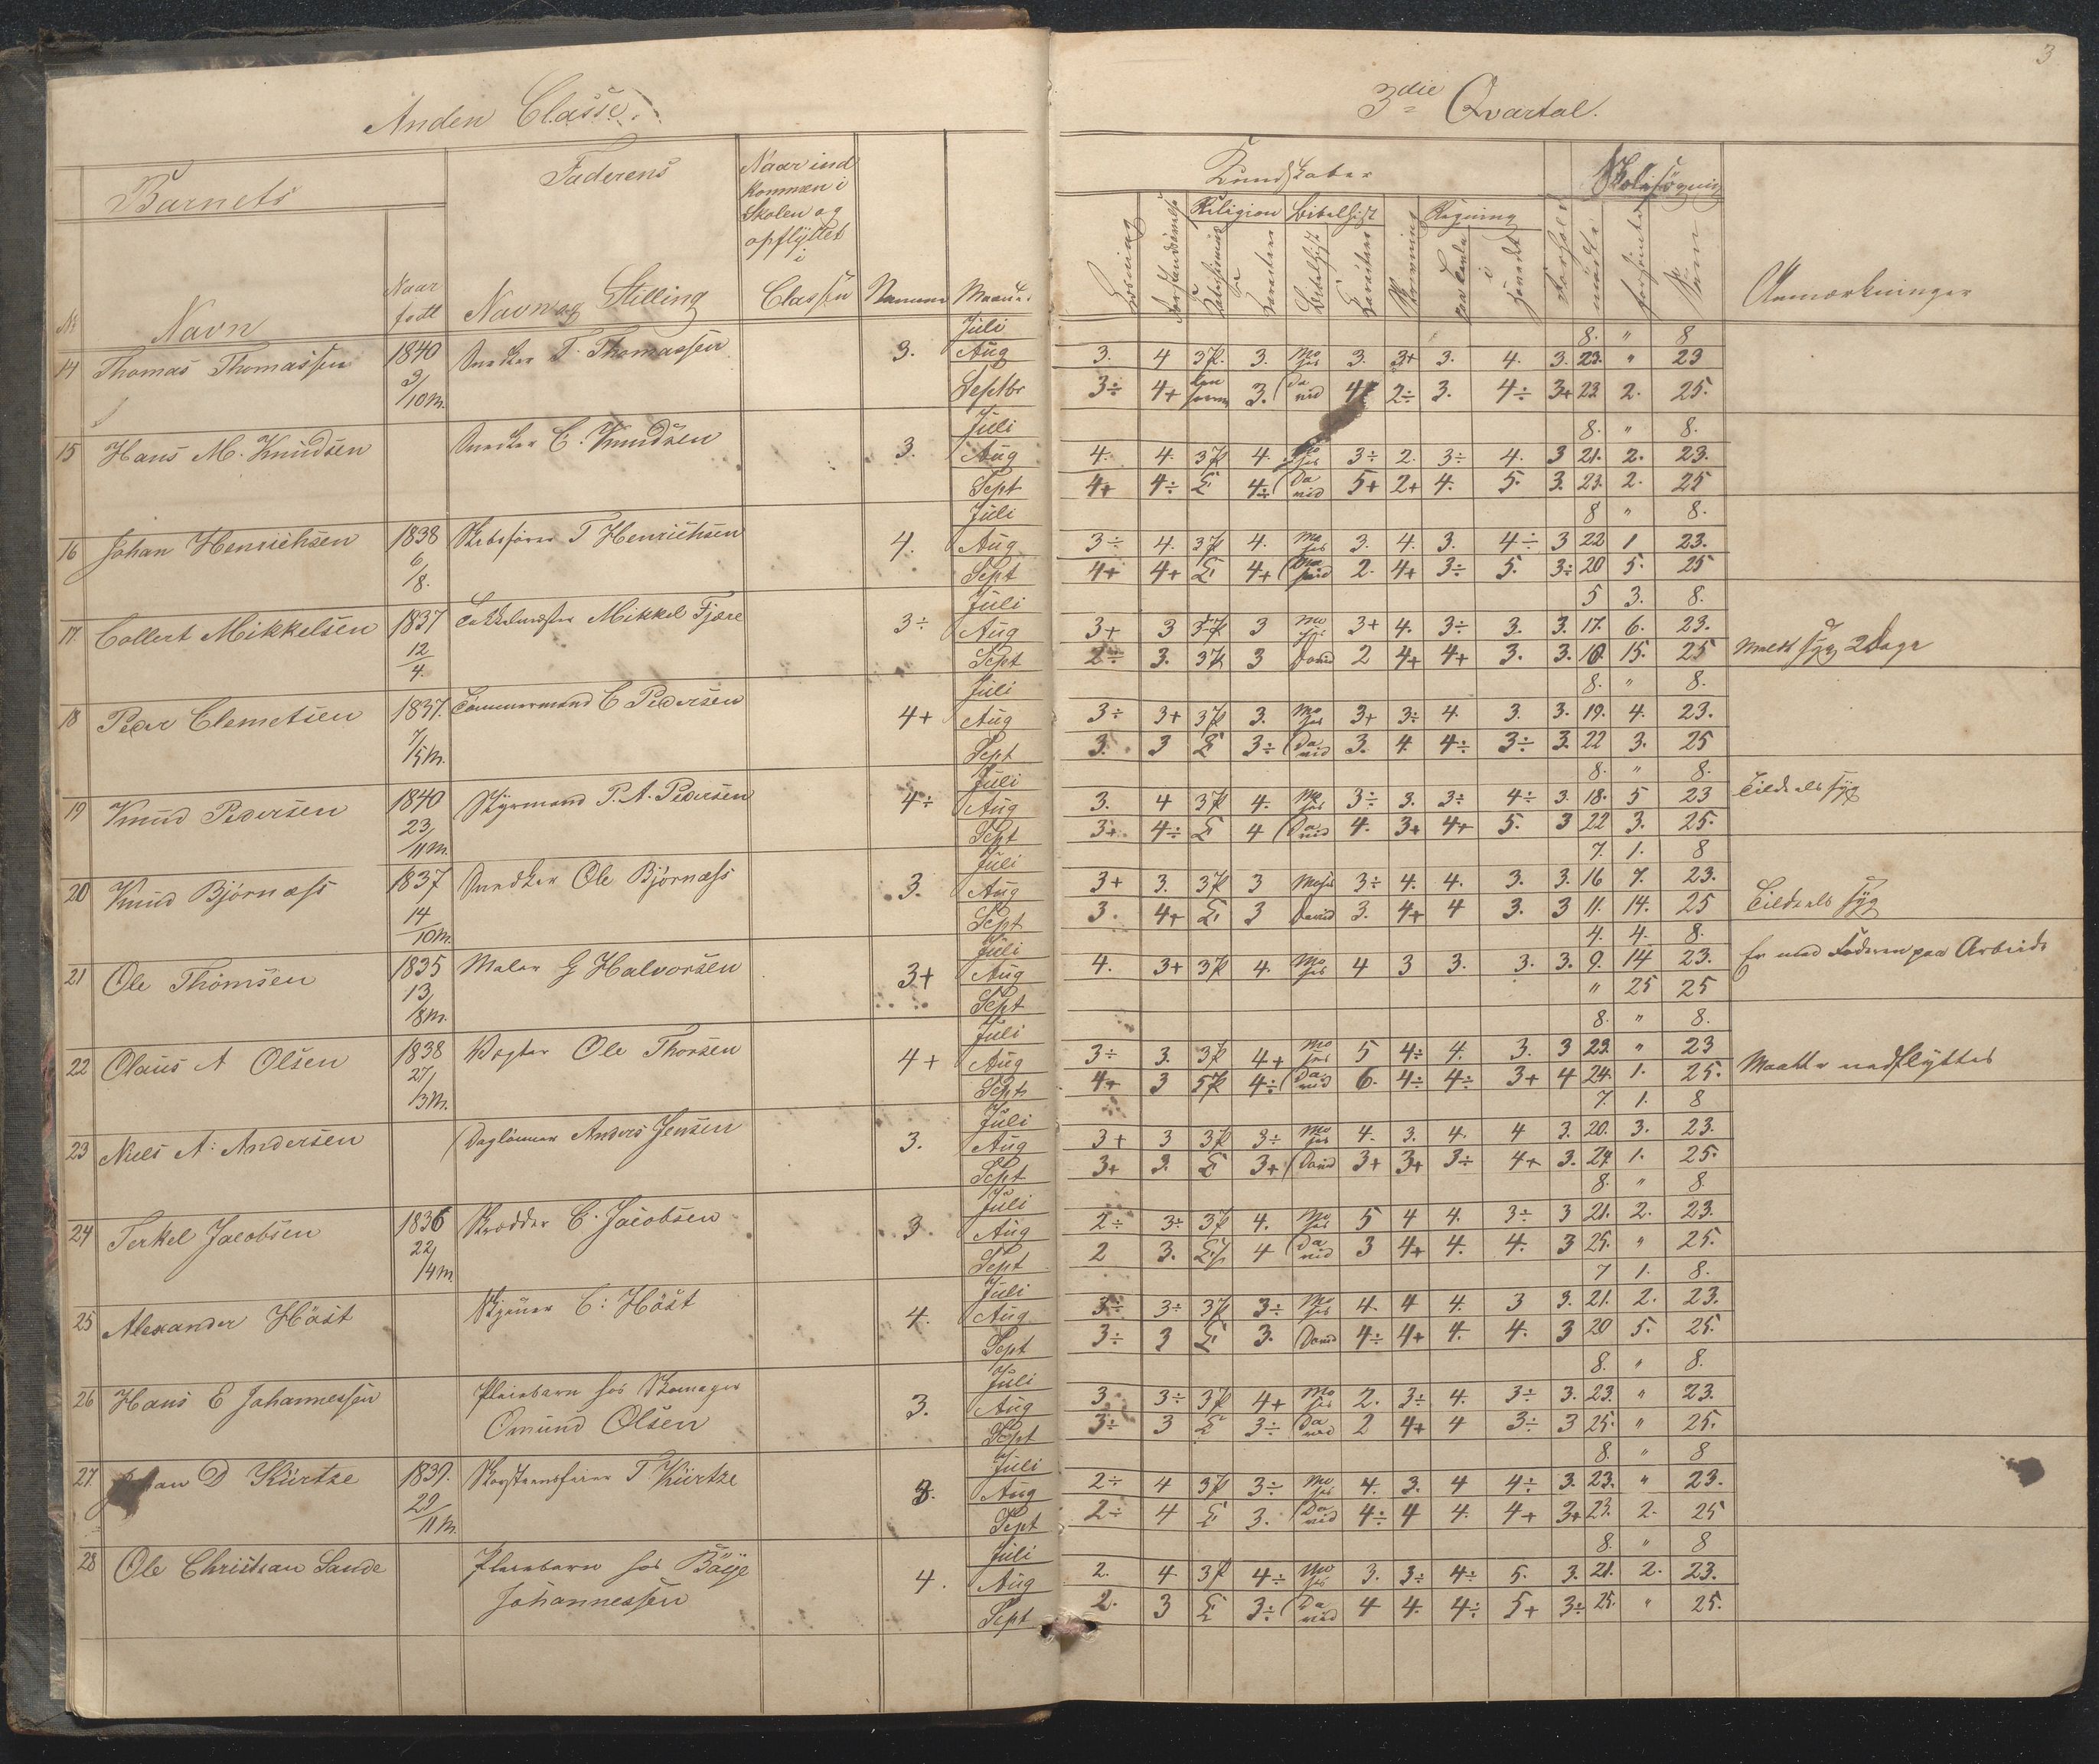 3
Anden Classe.
3die Qvartal.
Barnets
Faderens
Naar ind
kommen i
Skolen og
opflyttet
i
Classen
Kundskaber
Skolesøgning
Religion Bibelhist
Regning
Nr Navn
Naar
født
Navn og Stilling
Maanet
Læsning
Skrivning
mødte
forsømte
Sum
Anmærkninger
14 Thomas Thomassen 1840 9/10 m. Snedker T. Thomassen 3.
Juli 8. " 8
Aug 3. 4 3 P. 3. Moses 3. 3+ 3. 4. 3. 23. " 23
Septbr 3÷ 4+ 3. David 2÷ 3. 4÷ 3+ 23 2. 25.
15 Hans M. Knudsen Snedker C. Knudsen 3.
Juli 8. " 8.
Aug 4. 4. 3 P 4. Moses 3÷ 2. 3÷ 4. 3 21. 2. 23.
Sept 4+ 4÷ E 4÷ David 5+ 2+ 4. 5. 3. 23. 2. 25
16 Johan Henrichsen 1838 6/8. Skibsfører T Henrichsen 4.
Juli 8 " 8.
Aug 3÷ 4. 3 P 4. Moses 3. 4. 3. 4÷ 3 22 1 23.
Sept 4+ 4+ E 4+ David 2. 4+ 3÷ 5. 3÷ 20 5. 25
17. Collert Mikkelsen 1837 12/4. Mikkel Fjære 3÷
Juli 5 3. 8.
Aug 3+ 3 3 P 3 Moses 3+ 4. 3÷ 3. 3. 17. 6. 23.
Sept 2÷ 3. 3 P 3 David 2 4+ 4+ 3. 3. 10. 15. 25 Meldt syg 2 Dage
18 Peder Clemetsen 1837. 7/5 m. Tømmermand C Pedersen 4+
Juli 8. " 8.
Aug 3÷ 3+ 3 P 3. Moses 3+ 3÷ 4. 3. 3. 19. 4. 23.
Sept 3. 3 E 3÷ David 3. 4. 4÷ 3÷ 3. 22 3. 25
19 Knud Pedersen 1840 23/11 m. Styrmand P. A. Pedersen 4÷
Juli 8. " 8.
Aug 3. 4 3 P 4. Moses 3÷ 3. 3÷ 4÷ 3. 18. 5 23 Tildels syg
Sept 3+ 4÷ E 4 David 4. 3+ 4+ 5. 3 22 3. 25.
20 Knud Bjørnæss 1837 14/10 m. Snedker Ole Bjørnæss 3.
Juli 7. 1. 8
Aug 3+ 3. 3 P 3 Moses 3÷ 4. 4. 3. 3. 16 7. 23.
Sept 3. 4+ E 3 David 3. 4+ 4 3. 3 11. 14. 25 Tildels syg
21 Ole Thomsen 1835 13/8 m. Maler G Halvorsen 3+
Juli 4. 4. 8.
Aug 4. 3+ 3 P 4. Moses 4 3 3. 3. 3. 9. 14 23. Er med Faderen paa Arbeide
Sept " 25 25
22 Olaus A Olsen 1838 27/3 m. Vægter Ole Thorsen 4+
Juli 8. " 8.
Aug 3÷ 3. 3 P 4+ Moses 5 4÷ 4. 3. 3 23. " 23
Sept 4+ 3 5 P 4÷ David 6. 4÷ 4÷ 3+ 4 24. 1. 25. Maatte nedflyttes
23 Niels A. Andersen Daglønner Anders Jensen 3.
Juli 7. 1. 8
Aug 3+ 3 3 P 3÷ Moses 4. 3. 4. 4 3. 20. 3. 23.
Sept 3+ 3. E 3+ David 3+ 3+ 3÷ 4+ 3. 24 1. 25.
24 Terkel Jacobsen 1836 22/4 m. Skrædder C. Jacobsen 3.
Juli 8. " 8.
Aug 2÷ 3÷ 3 P 4. Moses 5 4 4. 3÷ 3 21. 2. 23.
Sept 2 3. E 4 David 3 4+ 4. 4. 3 25. " 25.
25 Alexander Höst C: Höst 4.
Juli 7 1. 8.
Aug 3÷ 3÷ 3 P 3÷ Moses 4. 4 4. 3 3. 21. 2. 23.
Sept 3÷ 3 E 3. David 4÷ 4+ 4. 4. 3 20 5. 25.
26 Hans E Johannessen Pleiebarn hos Skomager
Omund Olsen 3.
Juli 8. " 8.
Aug 3 3÷ 3 P 4+ Moses 2. 3÷ 4. 3÷ 3. 23. " 23.
Sept 3÷ 3 E 3÷ David 2 4+ 4 3÷ 3 25. " 25.
27. D Kürtze 1839. 29/11 m. Skorsteensfeier T. Kürtze 3.
Juli 8. " 8
Aug 2÷ 4 3 P 3÷ Moses 4. 3. 4 4÷ 3. 23. " 23.
Sept 2÷ 4 E 3. David 4÷ 4 4. 4+ 3+ 23. 2. 25
28 Ole Christian Sande Pleiebarn hos Böÿe
Johannessen 4.
Juli 8. " 8
Aug 2. 4 3 P 4÷ Moses 3. 3÷ 4÷ 5. 3. 21. 2. 23.
Sept 2. 3 E 3÷ David 4 4. 4÷ 5+ 3÷ 25. " 25.